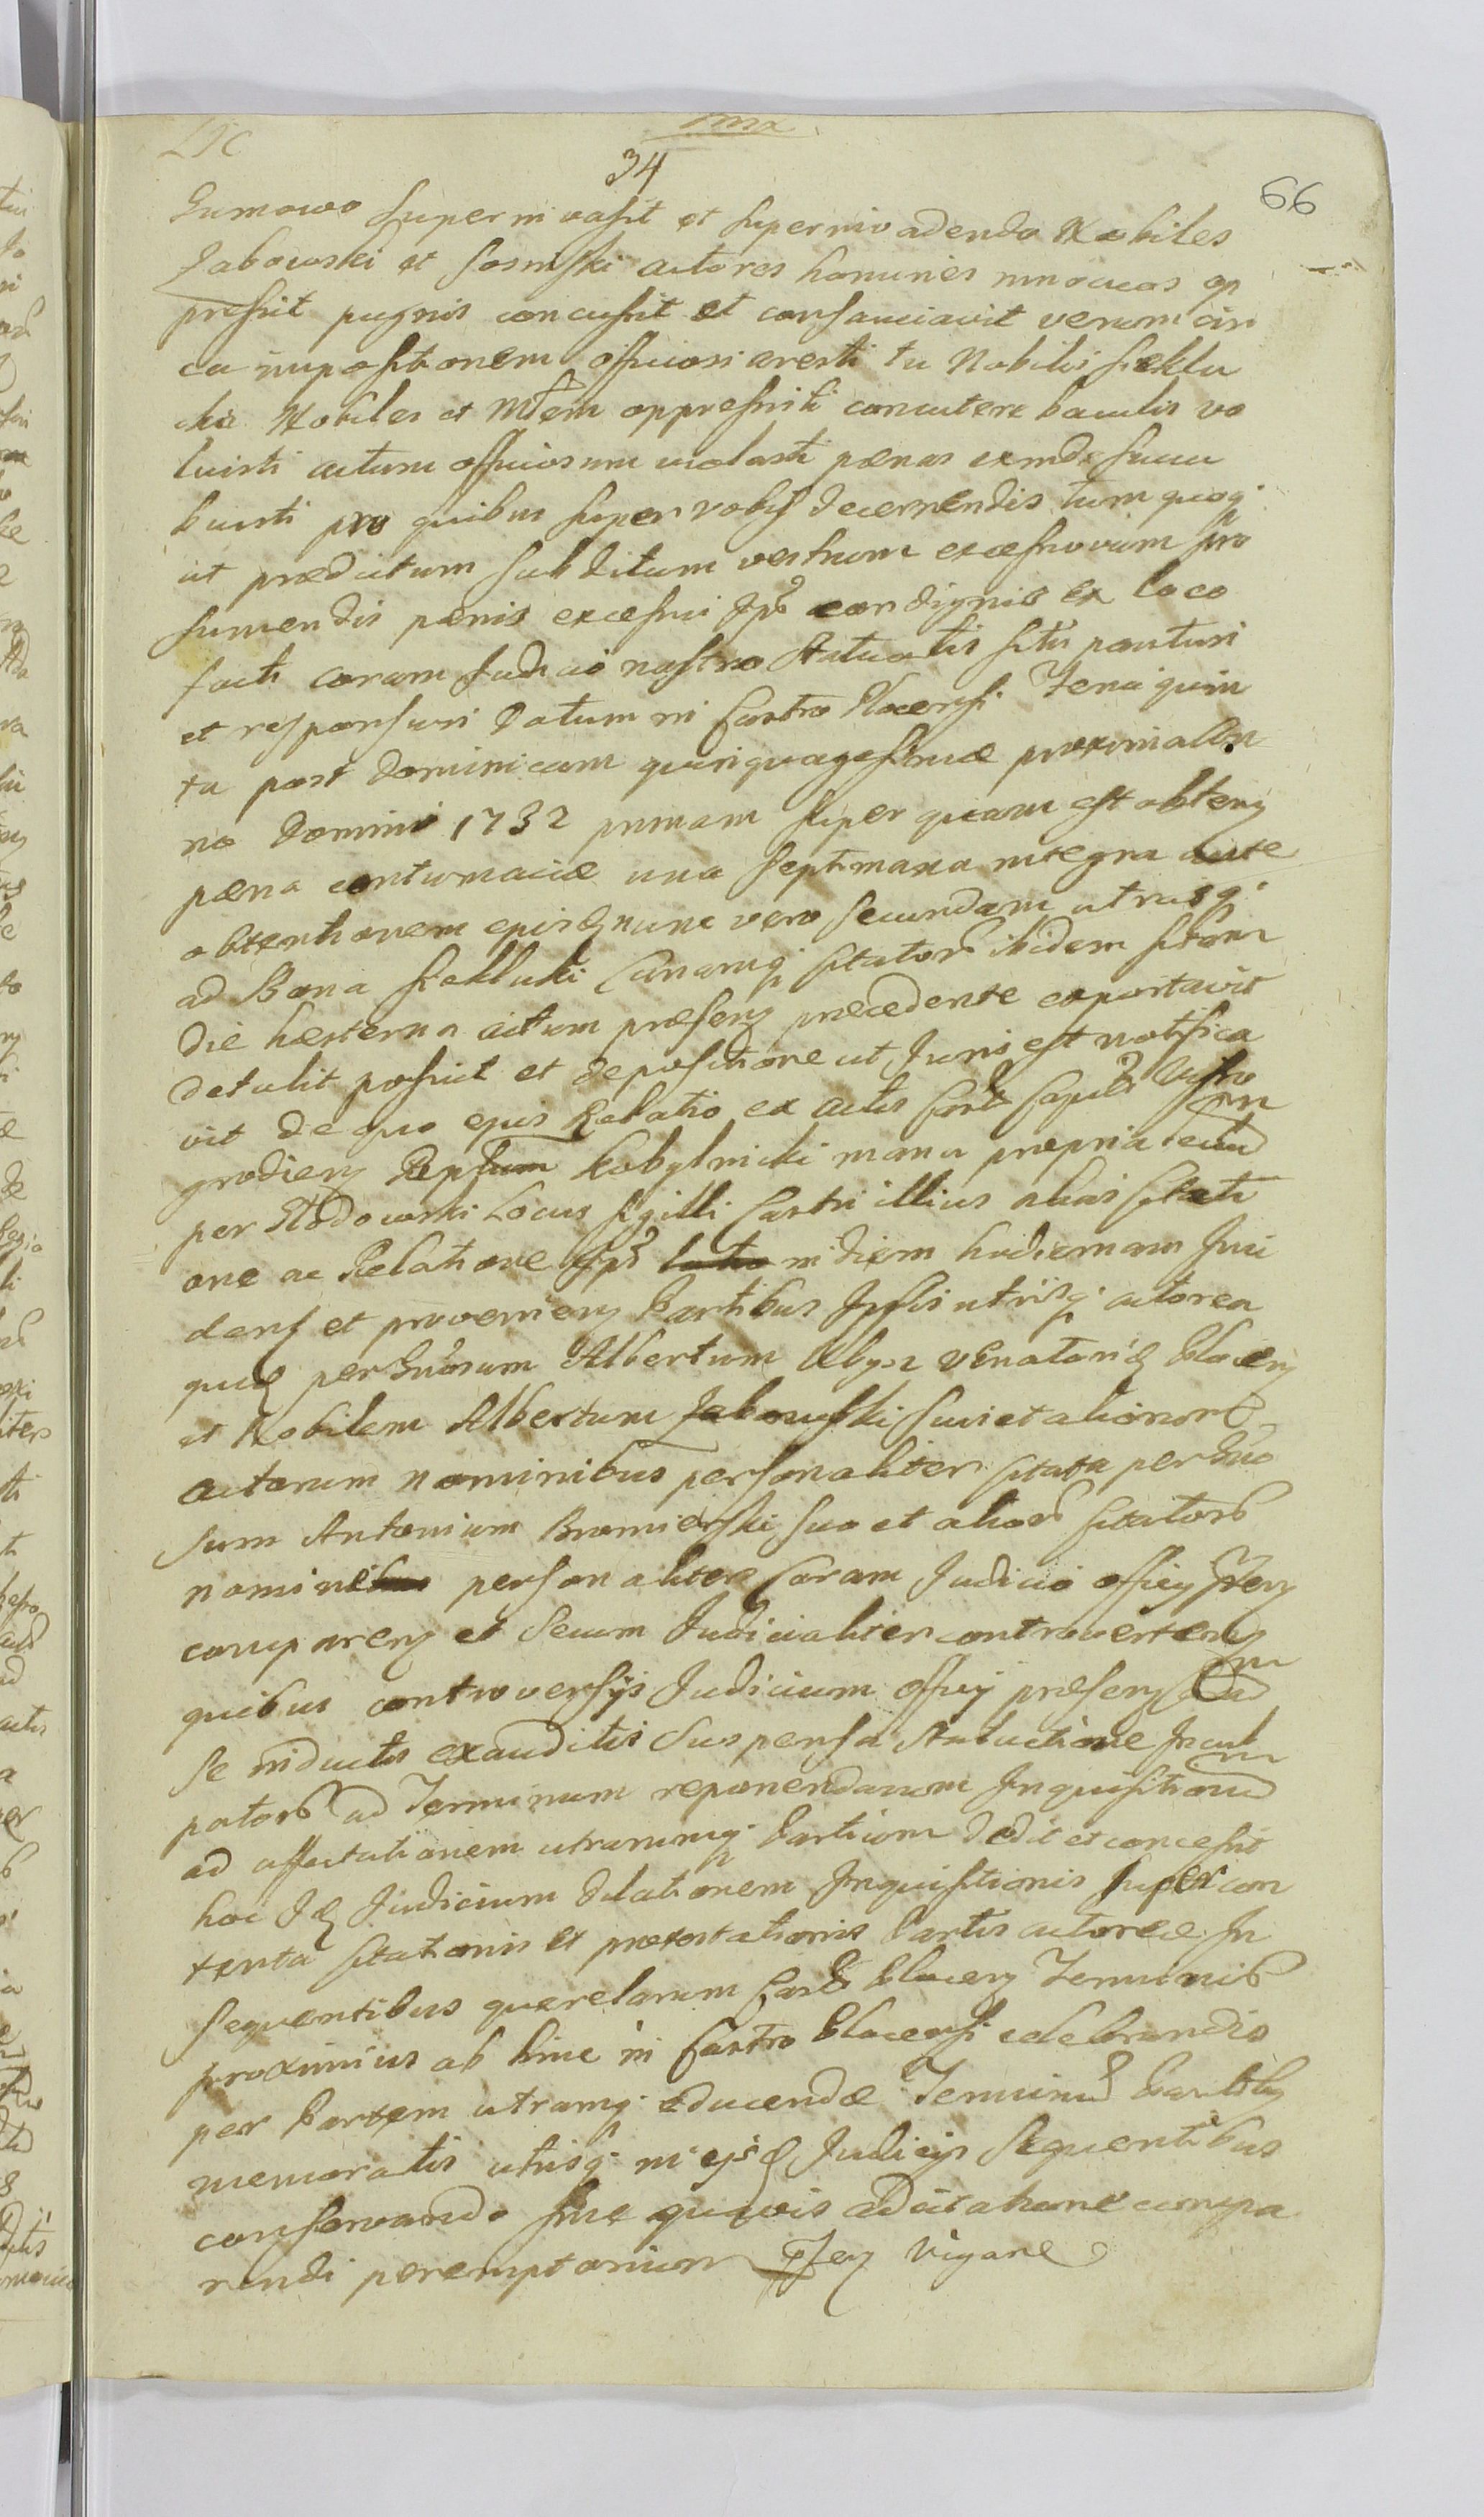 34
66
Gumowo superinvasit et superinvadendo Nobiles
Jabowski et Sosinski actores homines innocuos op
pressit pugnis concussit et consauciavit verum cir
ca impositionem officiosi aresti tu Nobilis Siekluc
ki Nobiles et oppressisti concutere baculis vo
luisti actum officiosum violasti pœnas exinde succu
buisti pro quibus super vobis decernendis tum quoq
ut prædictum subditum vestrum excessivum pro
sumendis pœnis excessui condignis ex loco
facti coram Judicio nostro Statuatis sitis parituri
et responsuri Datum in Castro Plocensi Feria quin
ta post Dominicam quinquagesimæ proxima An
no Domini 1732 primam super quam est obteny
pœna contumaciæ una septimana integra ante
obtentionem ejus nunc vero secundam utrasq
ad Bona Siekluki Cunarumq Citator ibidem sitam
die hesterna actum præseny præcedente exportavit
detulit posuit et depositione ut Juris est notifica
vit de quo ejus Relatio ex actis Castr Capit Vischo
grodieny Kobylnicki manu propria
per Stodowski Locus Sigilli Castri illius alias Citati
one ac Relatione in diem hodiernam Inci
deny et provenieny Partibus Ipsis utrisq actorea
quid per Gnosum Albertum venatorid Ploceny
et Nobilem Albertum Jabowski sui et aliorum
actorum nominibus personaliter citata per Gno
sum Antonium Bromierski suo et alior Citator
nomine personaliter Coram Judicio officy
compareny et secum Judicialiter controverteny
quibus controversijs Judicium officy præseny
se inductis exauditis suspensa Statuitione Incul
pator ad Terminum reponendarum Inquisitionu
ad affectationem utrarumq Partium dedit et concessit
hoc Id Judicium dilationem Inquisitionis super con
tenta Citationis et protestationis Partis actoreæ In
sequentibus querelarum Castr Ploceny Terminis
proximius ab hinc in Castro Plocensi celebrandis
per Partem utramq educendæ Terminu Partiby
memoratis utrisq in ejsd Judicijs sequentibus
conservando sine quavis adcitatione compa
rendi peremptorium Jey vigore